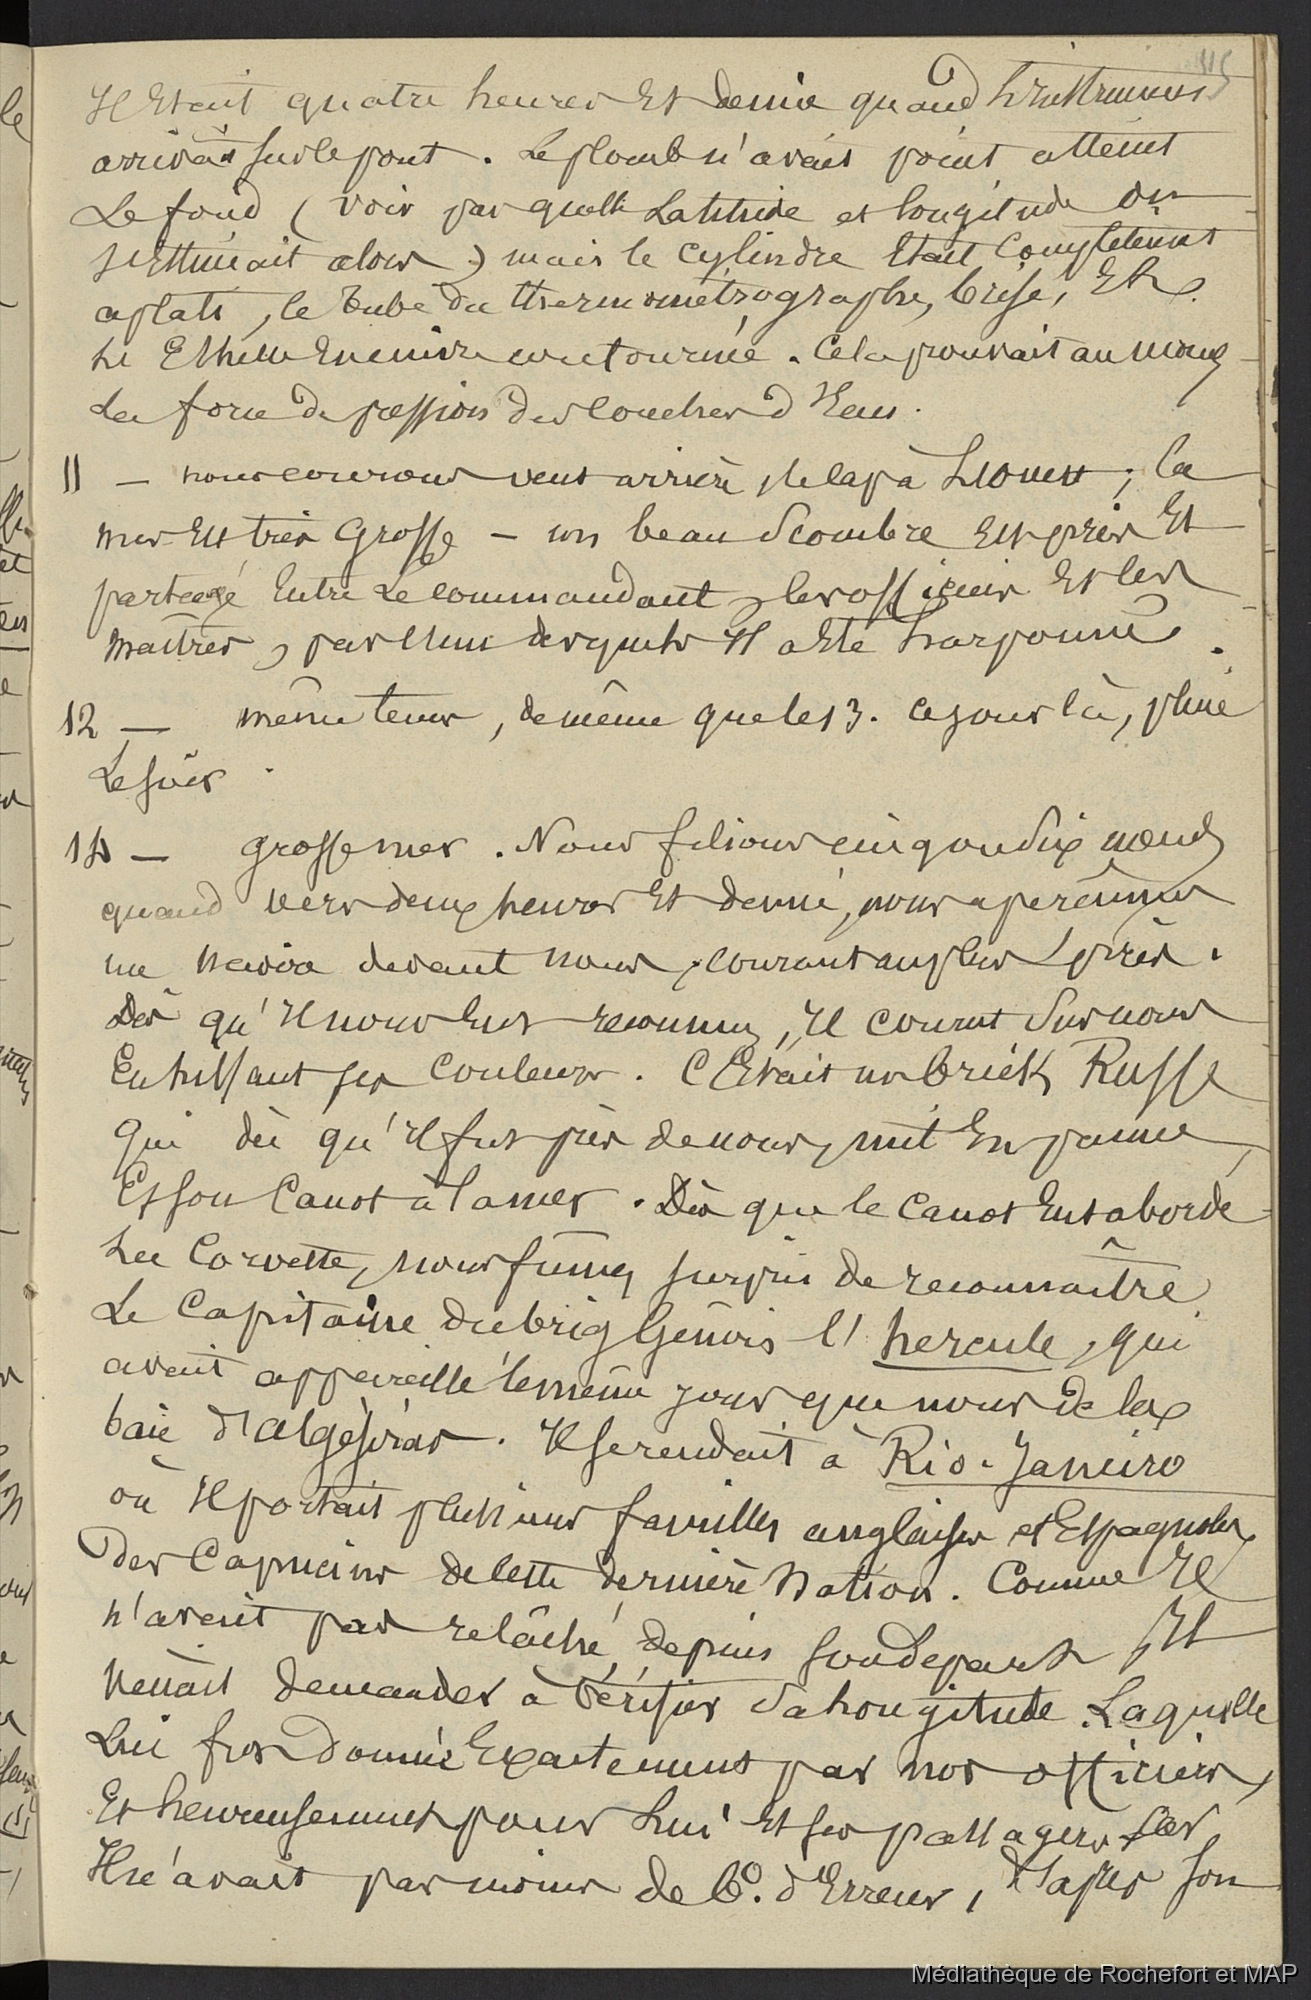 115
Il Etait quatre heures Et demie quand L'instrument
arriva sur le pont. Le plomb n'avait point atteint
Le fond (voir par quelle Latitude et longitude on
s'Estimait alors) mais le cylindre Etait Complètement
aplati, le tube du thermométrographe, brisé, Et
L'Echelle En cuivre contournée. Cela prouvait au moins
La force de pression des couches d'Eau.
11 — nous courrons vent arrière, le cap à L'Ouest; la
mer Est très Grosse — un beau Scombre Est pris Et
partagé Entre Le commandant, les officiers Et les
maîtres, par l'un desquels Il a Eté harponné.
12 — même tems, de même que le 13. ce jour là, pluie
Le soir.
14 — grosse mer. Nous filions cinq ou six noeuds
quand vers deux heures Et demie, nous aperçûmes
un navire devant nous, courant au plus près.
Dès qu'Il nous Eut reconnus, Il courut Sur nous
En hissant ses couleurs. C'Etait un brick Russe
Qui dès qu'Il fut près de nous, mit En panne,
Et son Canot à la mer. Dès que le canot Eut abordé
La Corvette, nous fûmes surpris de reconnaître
Le Capitaine du brig Génois l'hercule, qui
avait appareillé le même jour que nous de la
baie d'Algésiras. Il se rendait à Rio-Janeiro
où Il portait plusieurs familles anglaises et Espagnoles
Des Capucins de cette dernière Nation. Comme Il
n'avait pas relâché depuis son Départ, Il
Venait demander à vérifier Sa Longitude. Laquelle
Lui fut Donnée Exactement par nos officiers,
Et heureusement pour Lui Et ses passagers car
Il n'avait pas moins de 6°. d'Erreur, d'après son